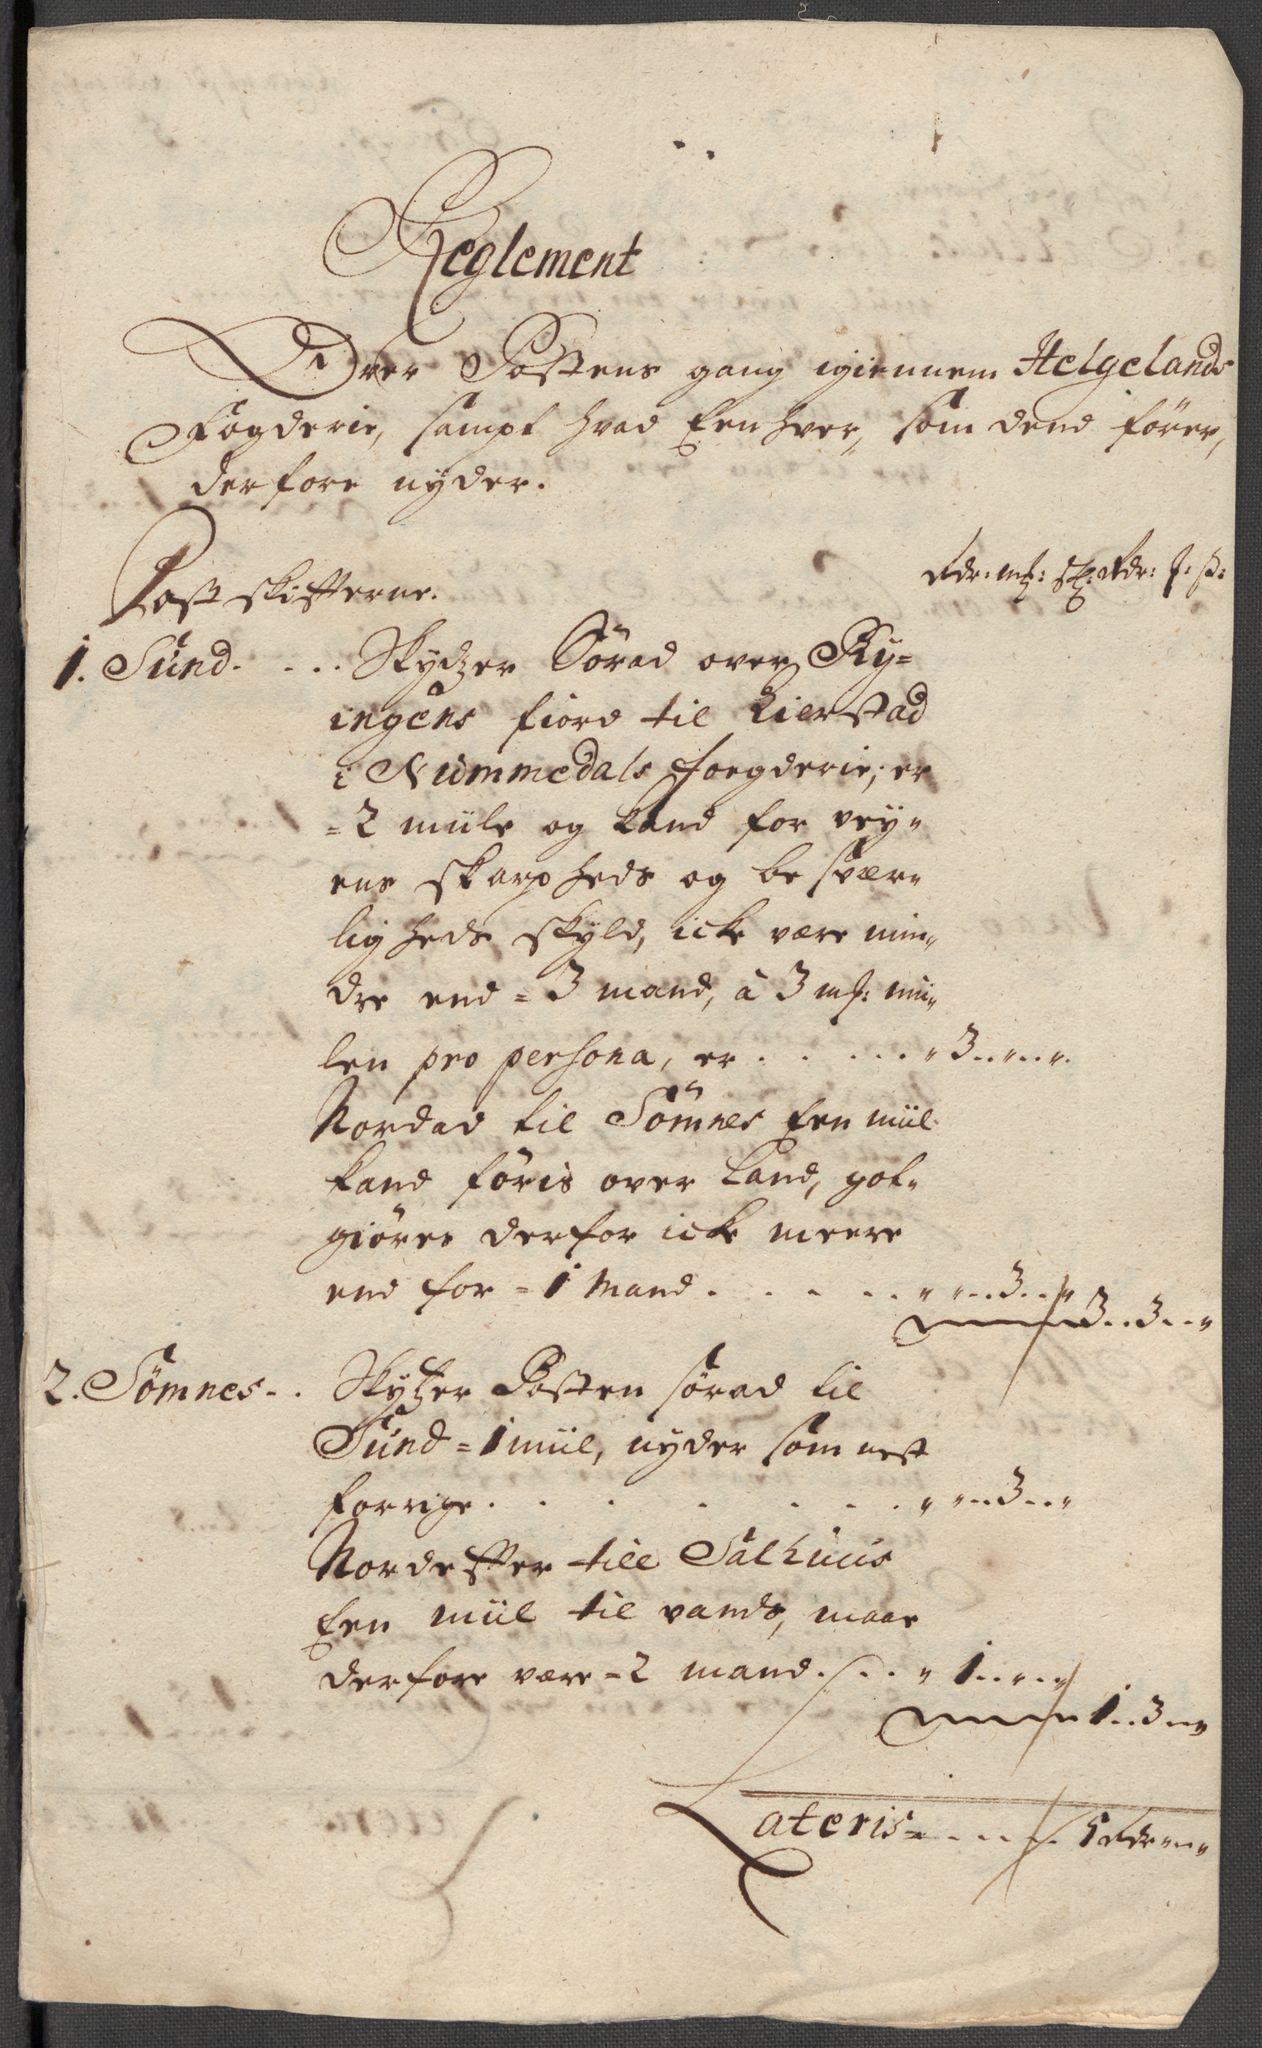 Reglement
Over Postens gang igiennem Helgelands
Fogderie, sampt hvad Een hver, som dend fører,
derfore nyder.
Postskifterne. Rdr: mk: sk: Rdr: mk: sk:
1. Sund. . . . Skydzer Sørad over Ry=
ingens fiord til Lierstad
i Nummedals foegderie; er
=2 miile og kand for vey„
ens skarpheds og besvær„
ligheds skyld, icke være min„
dre end = 3 mand, à 3 mk: mii„
len pro persona, er . . . . . „ 3 . . „ . . „ .
Nordad til Sømnes Een miil
kand føris over Land, got„
giøres derfor icke meere
end for = 1 Mand . . . . . „ „ . . 3 . . „
3 . . 3 . . „
2. Sømnes - . Skytzer Posten sørad til
Sund = 1 miil, nyder som nest
forrige . . . . . . . „ „ . . 3 . . „
Nordefter till Salhuus
Een miil til vands, maae
derfore være = 2 mand . . . . „ 1 . . „ . . „
1 . . 3 . . „
Lateris = . . . . . 5 Rdr „ . . „